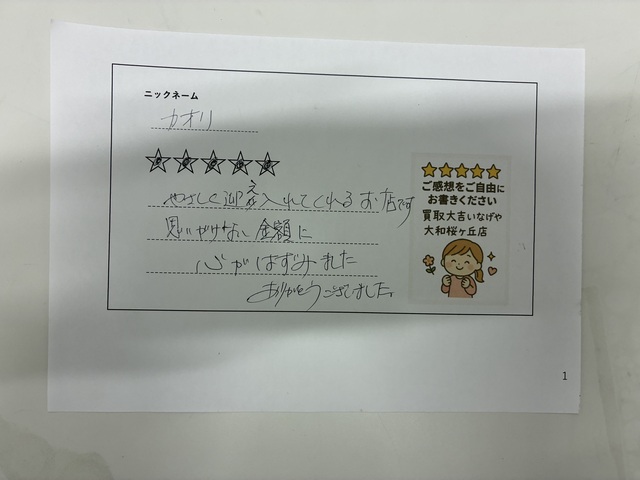 ニックネーム
カオリ
やさしく迎え入れてくれるお店です
思いがけない金額に
心がはずみました
ありがとうございました。
ご感想をご自由に
お書きください
買取大吉いなげや
大和桜ヶ丘店
1